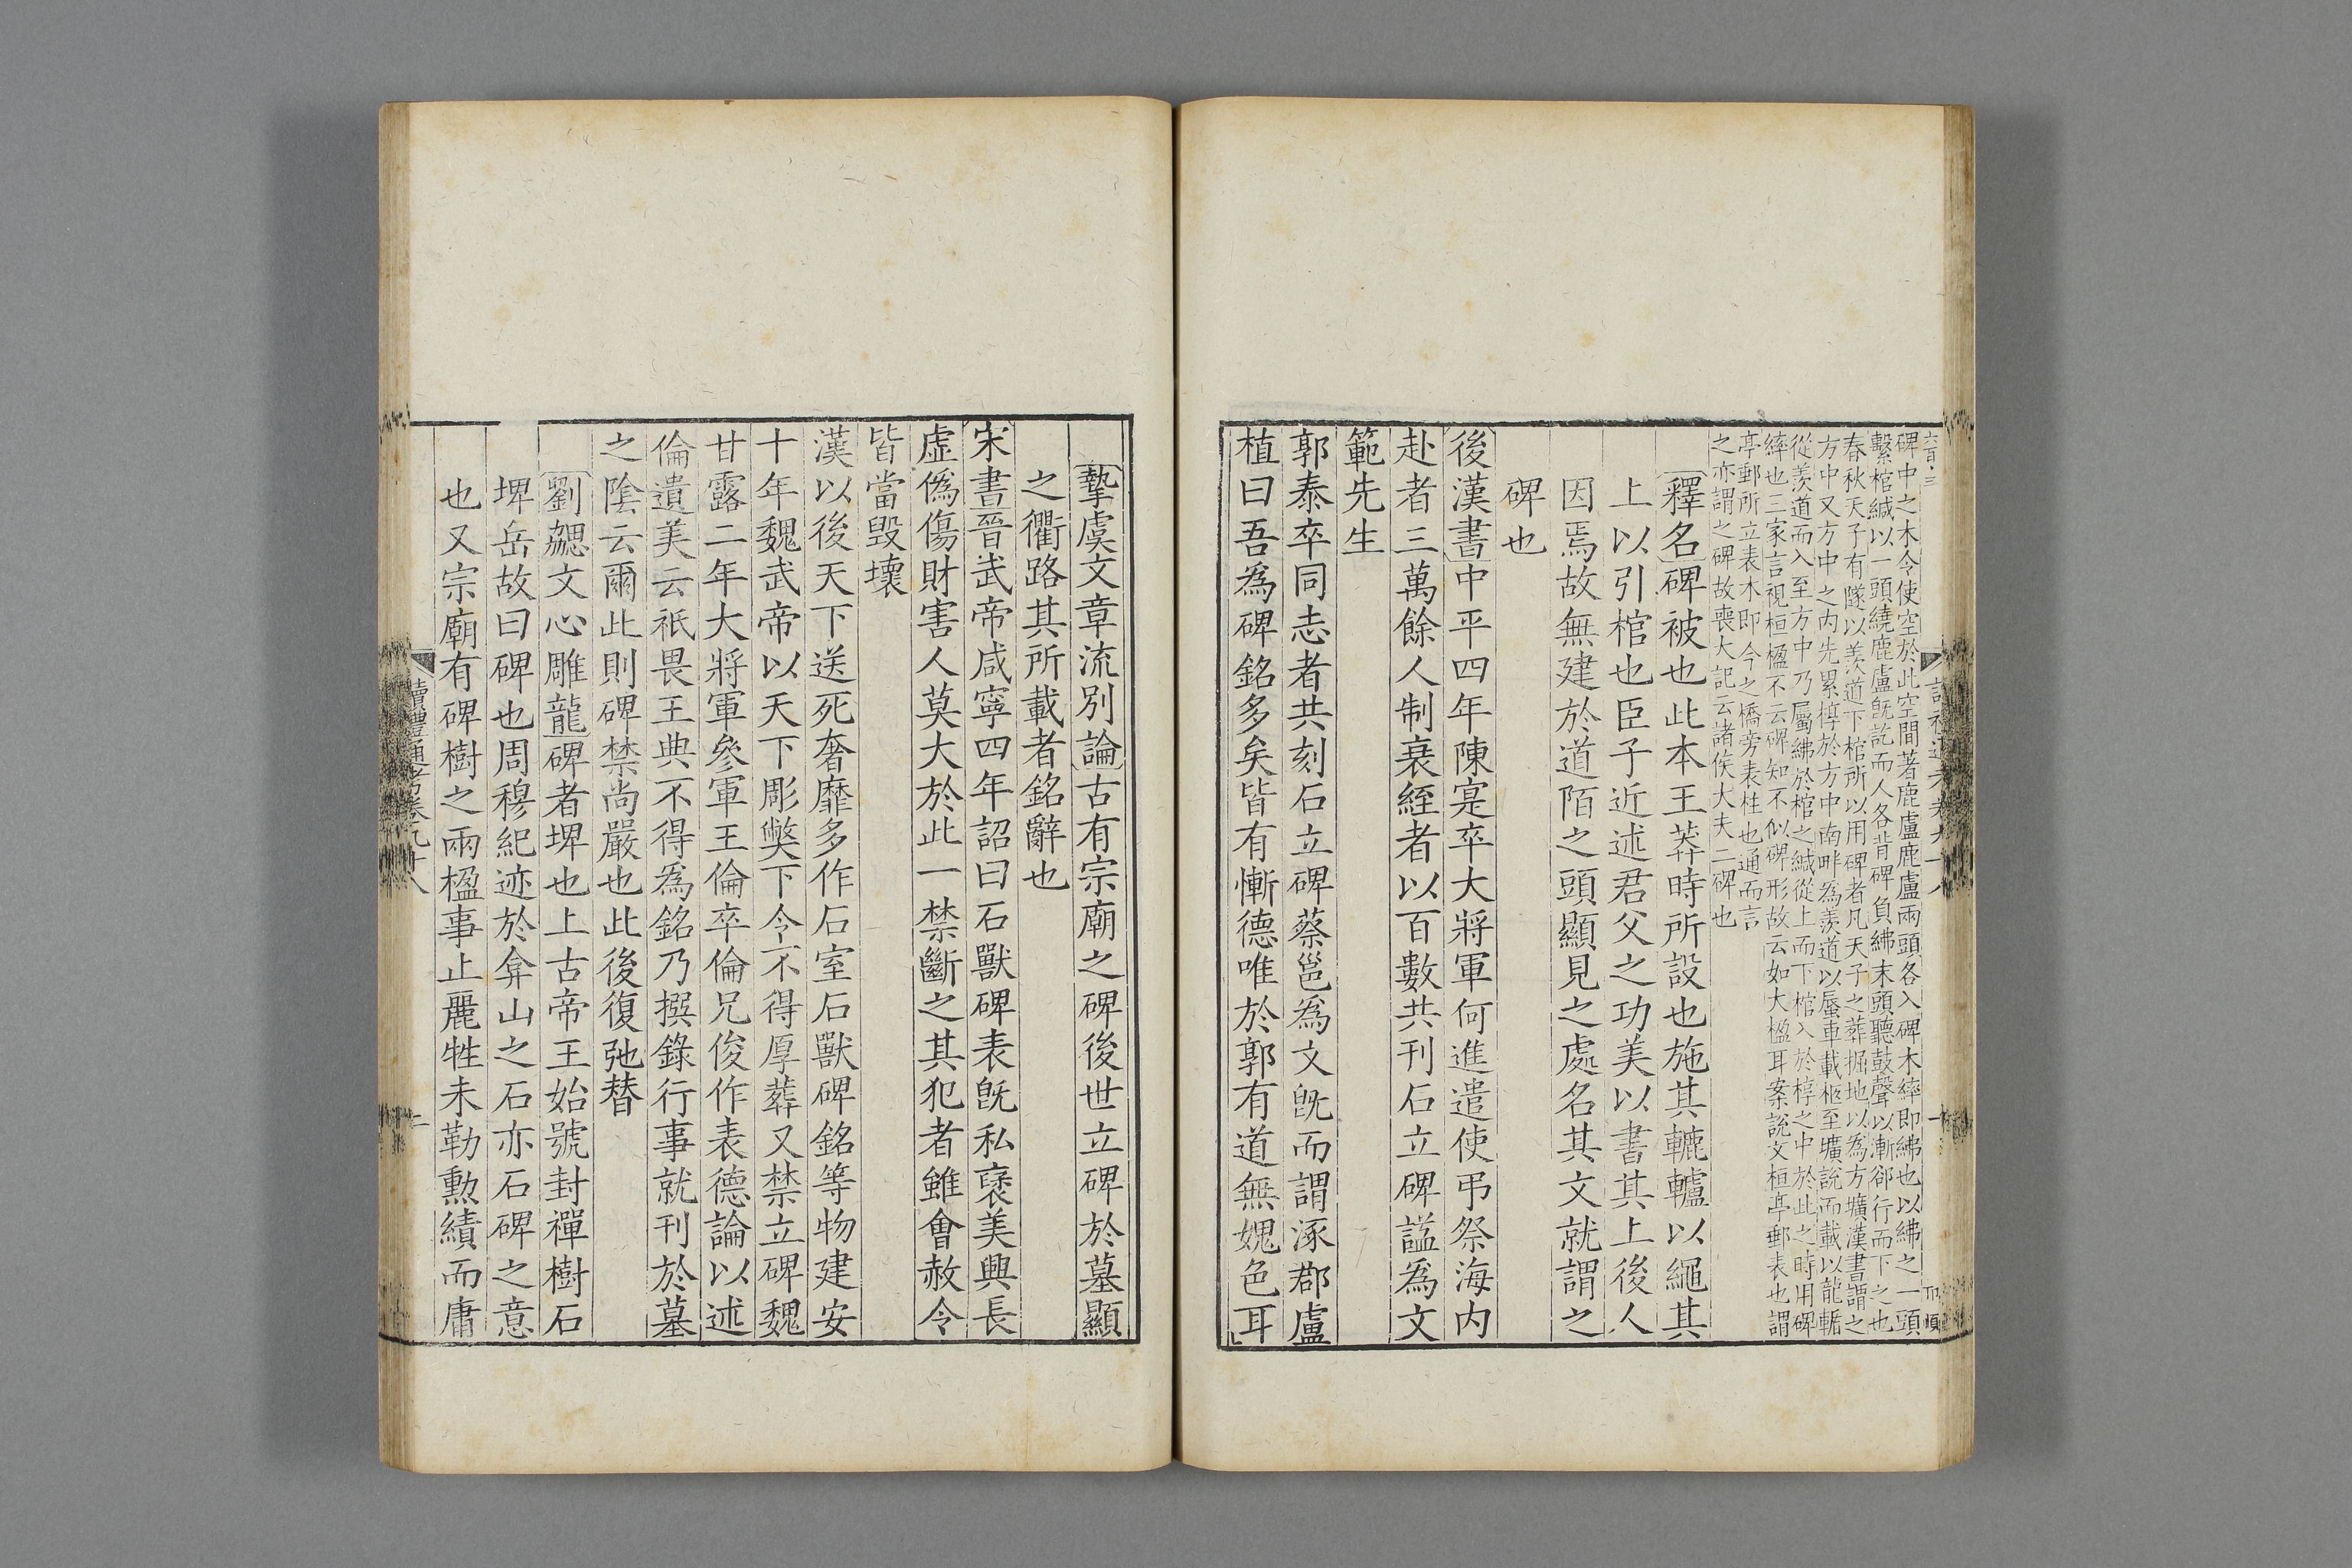 碑中之木今使空於此空間著鹿盧鹿盧兩頭各入碑木繂即紼也以紼之一頭
繫棺緘以一頭繞鹿盧旣訖而人各背碑負紼末頭聽鼓聲以漸郤行而下之也
春秋天子有隧以羨道下棺所以用碑者凡天子之葬掘地以為方壙漢書謂之
方中又方中之內先累椁於方中南畔為羨道以蜃車載柩至壙說而載以龍輴
從羨道而入至方中乃屬紼於棺之緘從上而下棺入於椁之中於此之時用碑
繂也三家言視桓楹不云碑知不似碑形故云如大楹耳案說文桓亭郵表也謂
亭郵所立表木即今之橋旁表柱也通而言
之亦謂之碑故喪大記云諸侯大夫二碑也
釋名碑被也此本王莽時所設也施其轆轤以繩其
上以引棺也臣子近述君父之功美以書其上後人
因焉故無建於道陌之頭顯見之處名其文就謂之
碑也
後漢書中平四年陳寔卒大將軍何進遣使弔祭海内
赴者三萬餘人制衰絰者以百數共刊石立碑諡為文
範先生
郭泰卒同志者共刻石立碑蔡邕為文旣而謂涿郡盧
植曰吾為碑銘多矣皆有慚德唯於郭有道無媿色耳
摯虞文章流別論古有宗廟之碑後世立碑於墓顯
之衢路其所載者銘辭也
宋書晉武帝咸寧四年詔曰石獸碑表旣私褒美興長
虛僞傷財害人莫大於此一禁斷之其犯者雖會赦令
皆當毀壞
漢以後天下送死奢靡多作石室石獸碑銘等物建安
十年魏武帝以天下彫獘下令不得厚葬又禁立碑魏
甘露二年大將軍參軍王倫卒倫兄俊作表德論以述
倫遺美云祇畏王典不得為銘乃撰錄行事就刊於墓
之陰云爾此則碑禁尚嚴也此後復弛替
劉勰文心雕龍碑者埤也上古帝王始號封禪樹石
埤岳故曰碑也周穆紀迹於弇山之石亦石碑之意
也又宗廟有碑樹之兩楹事止麗牲未勒勳績而庸
讀禮通考卷九十八